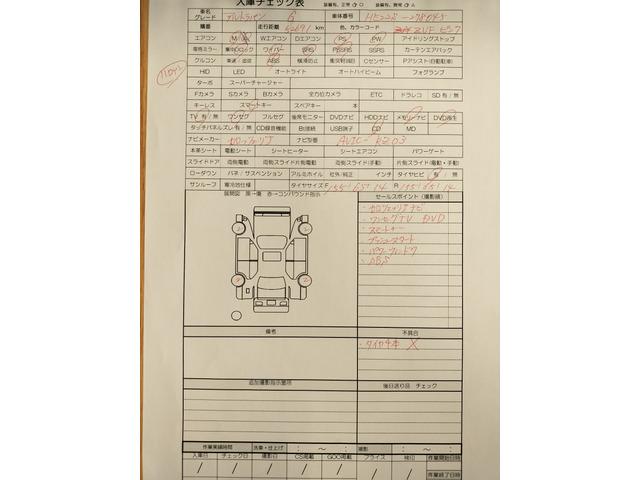 入庫チェック表
車名
グレード アルトラパン G 車体番号 HE22S-278045
積善 走行距離 km 色、カラーコード ZVF ピンク
エアコン Mミラー Wエアコン Dエアコン PS PW アイドリングストップ
専用ミラー 集中ロック ワイパー SRS PSSRS SSRS カーテンエアバック
クルコン 車速/追従 ABS 横滑防止 衝突軽減 Cセンサー Pアシスト(自動駐車)
HID LED オートライト オートハイビーム フォグランプ
ターボ スーパーチャージャー
Fカメラ Sカメラ Bカメラ 全方位カメラ ETC ドラレコ SD有/無
キーレス スマートキー スペアキー 本
TV有/無 ワンセグ フルセグ 後席モニター DVDナビ HDDナビ メモリーナビ DVD再生
タッチパネルズレ有/無 CD録音機能 Bt接続 USB端子 CD MD
ナビメーカー カロッツェリア ナビ型番 AVIC-RZ03
本革シート 電動シート シートヒーター シートエアコン パワーゲート
スライドドア 両側電動 両側スライド片側電動 両側スライド(手動) 片側スライド(電動・手動)
ローダウン バネ/サスペンション アルミホイル 社外/純正 インチ タイヤヒビ 有/無
サンルーフ 寒冷地仕様 タイヤサイズF 155/65/14 R 155/65/14
展開図 原→東 赤→コンパウンド指示 セールスポイント(撮影順)
・カロッツェリアナビ
・ワンセグTV DVD
・スマートキー
・プッシュスタート
・パワーウィンドウ
・ABS
備考 不具合
・タイヤ4本 X
追加撮影指示箇所 後日送り品 チェック
作業実績時間 洗車・仕上げ : ～ : 撮影 : ～ :
入庫日 チェック日 撮影日 CS掲載 GOO掲載 プライス 検印 作業開始日時
/ / / / / / / 作業終了日時